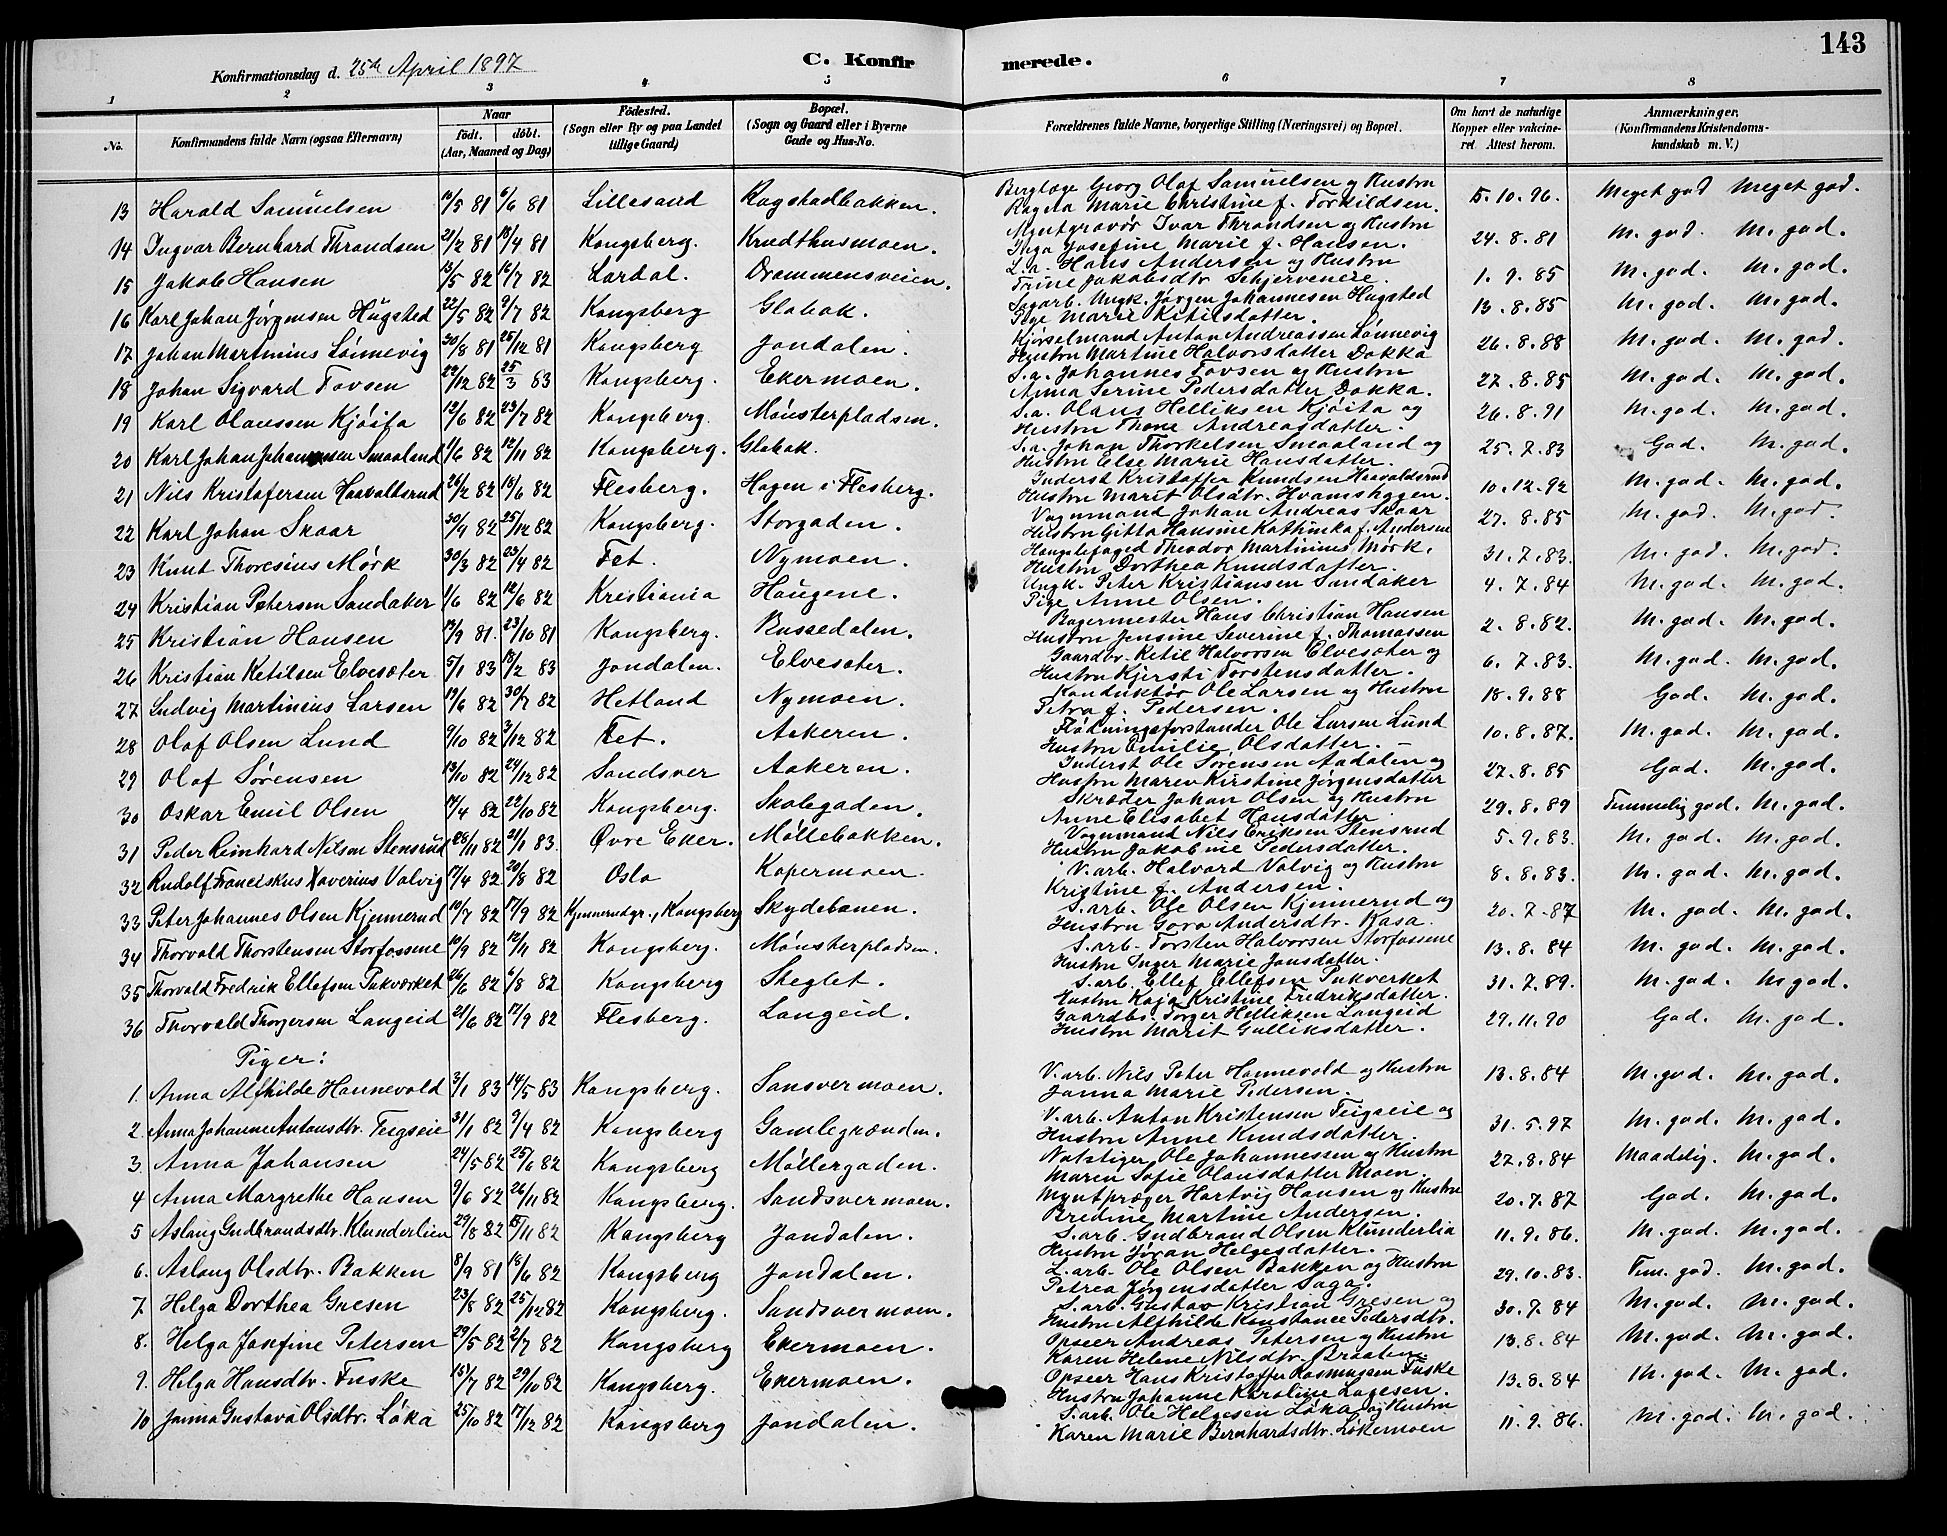 143
Konfirmationsdag d. 25de April 1897
C. Konfirmerede.
1 2 3 4 5 6 7 8
No. Konfirmandens fulde Navn (ogsaa Efternavn) Naar født. døbt. (Aar, Maaned og Dag) Fødested. (Sogn eller By og paa Landet tillige Gaard) Bopæl. (Sogn og Gaard eller i Byerne Gade og Hus-No. Forældrenes fulde Navne, borgerlige Stilling (Næringsvei) og Bopæl. Om havt de naturlige Kopper eller vakcineret Attest herom. Anmærkninger. (Konfirmandens Kristendomskundskab m. V.)
13 Harald Samuelsen 81 6/6 81 Lillesand Ragstadbakken. Georg Olaf Samuelsen og Hustru Ragna Marie Christine f. Torkildsen. 5.10.96. Meget god Meget god.
14 Ingvar Bernhard Throndsen 21/2 81 18/4 81 Kongsberg. Krudthusmoen. Myntgravør Ivar Throndsen og Hustru Inga Josefine Marie f. Hansen. 24.8.81 M. god. M. god.
15 Jakob Hansen 13/5 82 16/7 82 Lardal. Drammensveien. L.a. Hans Andersen og Hustru Trine Jakobsdtr. Skjervenere. 1.9.85 M. god. M. god.
16 Karl Johan Jørgensen Hugsted 22/5 82 9/7 82 Kongsberg Glabak. Sagarb. Ungk. Jørgen Johannesen Hugsted Pige Marie Kittilsdatter. 13.8.85 M. god. M. god.
17 Johan Martinius Lønnevig 30/8 81 25/12 81 Kongsberg Jondalen. Kjørselmand Anton Andreassen Lønnevig Hustru Martine Halvorsdatter Dokka 26.8.88 M. god. M. god.
18 Johan Sigvard Tovsen 22/12 82 25/3 83 Kongsberg. Ekermoen. S.a. Johannes Tovsen og Hustru Anna Serine Pedersdatter Dokka. 27.8.85 M. god. M. god.
19 Karl Olaussen Kjøita 12/6 82 23/7 82 Kongsberg. Mønsterpladsen. S.a. Olaus Helliksen Kjøita og Hustru Thone Andreasdatter. 26.8.91 M. god. M. god.
20 Karl Johan Johannesen Smaaland 1/6 82 12/11 82 Kongsberg. Glabak. S.a. Johan Thorkelsen Smaaland og Hustru Else Marie Hansdatter. 25.7.83 God. M. god.
21 Nils Kristofersen Haavaldsrud 26/2 82 18/6 82 Flesberg. Hagen i Flesberg. Inderst Kristoffer Knudsen Haavaldsrud Hustru Marit Olsdtr. Hvamshagen. 10.12.92 M. god. M. god.
22 Karl Johan Skaar 30/9 82 25/12 82 Kongsberg. Storgaden. Vognmand Johan Andreas Skaar Hustru Gitta Hansine Kathinka f. Andersen 27.8.85 M. god. M. god
23 Knut Thoresius Mørk 30/3 82 23/4 82 Fet. Nymoen. Theodor Martinius Mørk. Hustru Dorthea Knudsdatter. 31.7.83. M. god. M. god.
24 Kristian Petersen Sandaker 1/6 82 12/6 82 Kristiania Haugene. Ungk. Peter Kristiansen Sandaker Pige Anne Olsen. 4.7.84 M. god. M. god.
25 Kristian Hansen 17/9 81. 23/10 81 Kongsberg. Russedalen. Bagermester Hans Christian Hansen Hustru Jensine Severine f. Thomassen 2.8.82. M. god. M. god.
26 Kristian Ketilsen Elvesæter 5/1 83 18/2 83 Jondalen. Elvesæter. Gaardbr. Ketil Halvorsen Elvesæter og Hustru Kjersti Torstensdatter. 6.7.83. M. god. M. god.
27 Ludvig Martinius Larsen 19/6 82 30/7 82 Hetland Nymoen. Konduktør Ole Larsen og Hustru Petra f. Pedersen. 18.9.88 God. M. god.
28 Olaf Olsen Lund 9/10 82 3/12 82 Fet. Aakeren. Fløtningsforstander Ole Larsen Lund Hustru Emilie Olsdatter. 10.8.87. M. god. M. god.
29 Olaf Sørensen 13/10 82 24/12 82 Sandsver Aakeren. Inderst Ole Sørensen Aadalen og Hustru Maren Kirstine Jørgensdatter 27.8.85 God. M. god.
30 Oskar Emil Olsen 17/4 82 22/10 82 Kongsberg. Skolegaden. Skræder Johan Olsen og Hustru Anne Elisabet Hansdatter. 29.8.89 Temmelig god. M. god.
31 Peder Reinhard Nilsen Stensrud 28/11 82 21/1 83. Øvre Eker. Møllebakken. Vognmand Nils Eriksen Stensrud Hustru Jakobine Pedersdatter. 5.9.83. M. god. M. god.
32 Rudolf Franciskus Xaverius Valvig 17/4 82 20/8 82 Oslo Kopermoen. V. arb. Halvard Valvig og Hustru Kristine f. Andersen. 8.8.83. M. god. M. god.
33 Peter Johannes Olsen Kjennerud 10/7 82 17/9 82 Kjennerudgr., Kongsberg Skydebanen. S. arb. Ole Olsen Kjennerud og Hustru Goro Andersdtr. Kasa. 20.7.87 M. god. M. god.
34 Thorvald Thorstensen Storfossene 10/9 82 12/11 82 Kongsberg. Mønsterpladsen. S. arb. Torsten Halvorsen Storfossene Hustru Inger Marie Jansdatter. 13.8.84 M. god. M. god.
35 Thorvald Fredrik Ellefsen Pukværket 26/6 82 6/8 82 Kongsberg Steglet. S. arb. Ellef Ellefsen Pukverket Hustru Kaja Kristine Fredriksdatter. 31.7.89. M. god. M god.
36 Thorvald Thorgersen Langeid 21/6 82 17/9 82 Flesberg. Langeid. Gaardbr. Torger Helliksen Langeid Hustru Marit Gulliksdatter. 29.11.90 God. M. god.
Piger:
1. Anna Alfhilde Hannevold 3/1 83 14/5 83 Kongsberg. Sansvermoen. V. arb. Nils Peter Hannevold og Hustru Janna Marie Pedersen. 13.8.84 M. god. M. god.
2. Anna Johanne Antonsdtr. Teigseie 31/1 82 9/4 82 Kongsberg Gamlegrænden. V. arb. Anton Kristensen Teigseie og Hustru Anne Knudsdatter. 31.5.97 M. god. M. god.
3. Anna Johansen 24/5 82 25/6 82 Kongsberg Møllergaden. Ole Johannessen og Hustru Maren Sofie Olausdatter Moen. 27.8.84 Maadelig. M. god.
4 Anna Margrethe Hansen 9/6 82 26/11 82 Kongsberg. Sandsvermoen. Myntpræger Hartvig Hansen og Hustru Bredine Martine Andersen. 20.7.87 God. M. god.
5 Aslaug Gudbrandsdtr. Klunderlien 29/8 82 15/11 82 Kongsberg Jondalen. S. arb. Gudbrand Olsen Klunderlia Hustru Jøran Helgesdatter. 11.9.86. M. god. M. god.
6. Aslaug Olsdtr. Bakken 8/9 81 18/6 82 Kongsberg Jondalen. L. arb. Ole Olsen Bakken og Hustru Petrea Jørgensdatter Saga. 29.10.83. Tem. god. M. god.
7. Helga Dorthea Gresen 23/8 82 25/12 82 Kongsberg. Sandsvermoen. S. arb. Gustav Kristian Gresen og Hustru Alfhilde Konstance Pedersdtr. 30.7.84 M. god. M. god.
8. Helga Josefine Petersen 29/5 82 2/7 82 Kongsberg Ekermoen. Opseer Andreas Petersen og Hustru Karen Helene Nilsdtr. Braaten. 13.8.84 M. god. M. god.
9. Helga Hansdtr. Fuske 15/7 82 29/10 82 Kongsberg. Ekermoen. Opseer Hans Kristoffer Rasmussen Fuske Hustru Johanne Karoline Lagesen. 13.8.84 M. god. M. god.
10 Janna Gustava Olsdtr. Løka 25/10 82 17/12 82 Kongsberg Jondalen. S. arb. Ole Helgesen Løka og Hustru Karen Marie Bernhardsdtr. Løkemoen 11.9.86. M. god. M. god.